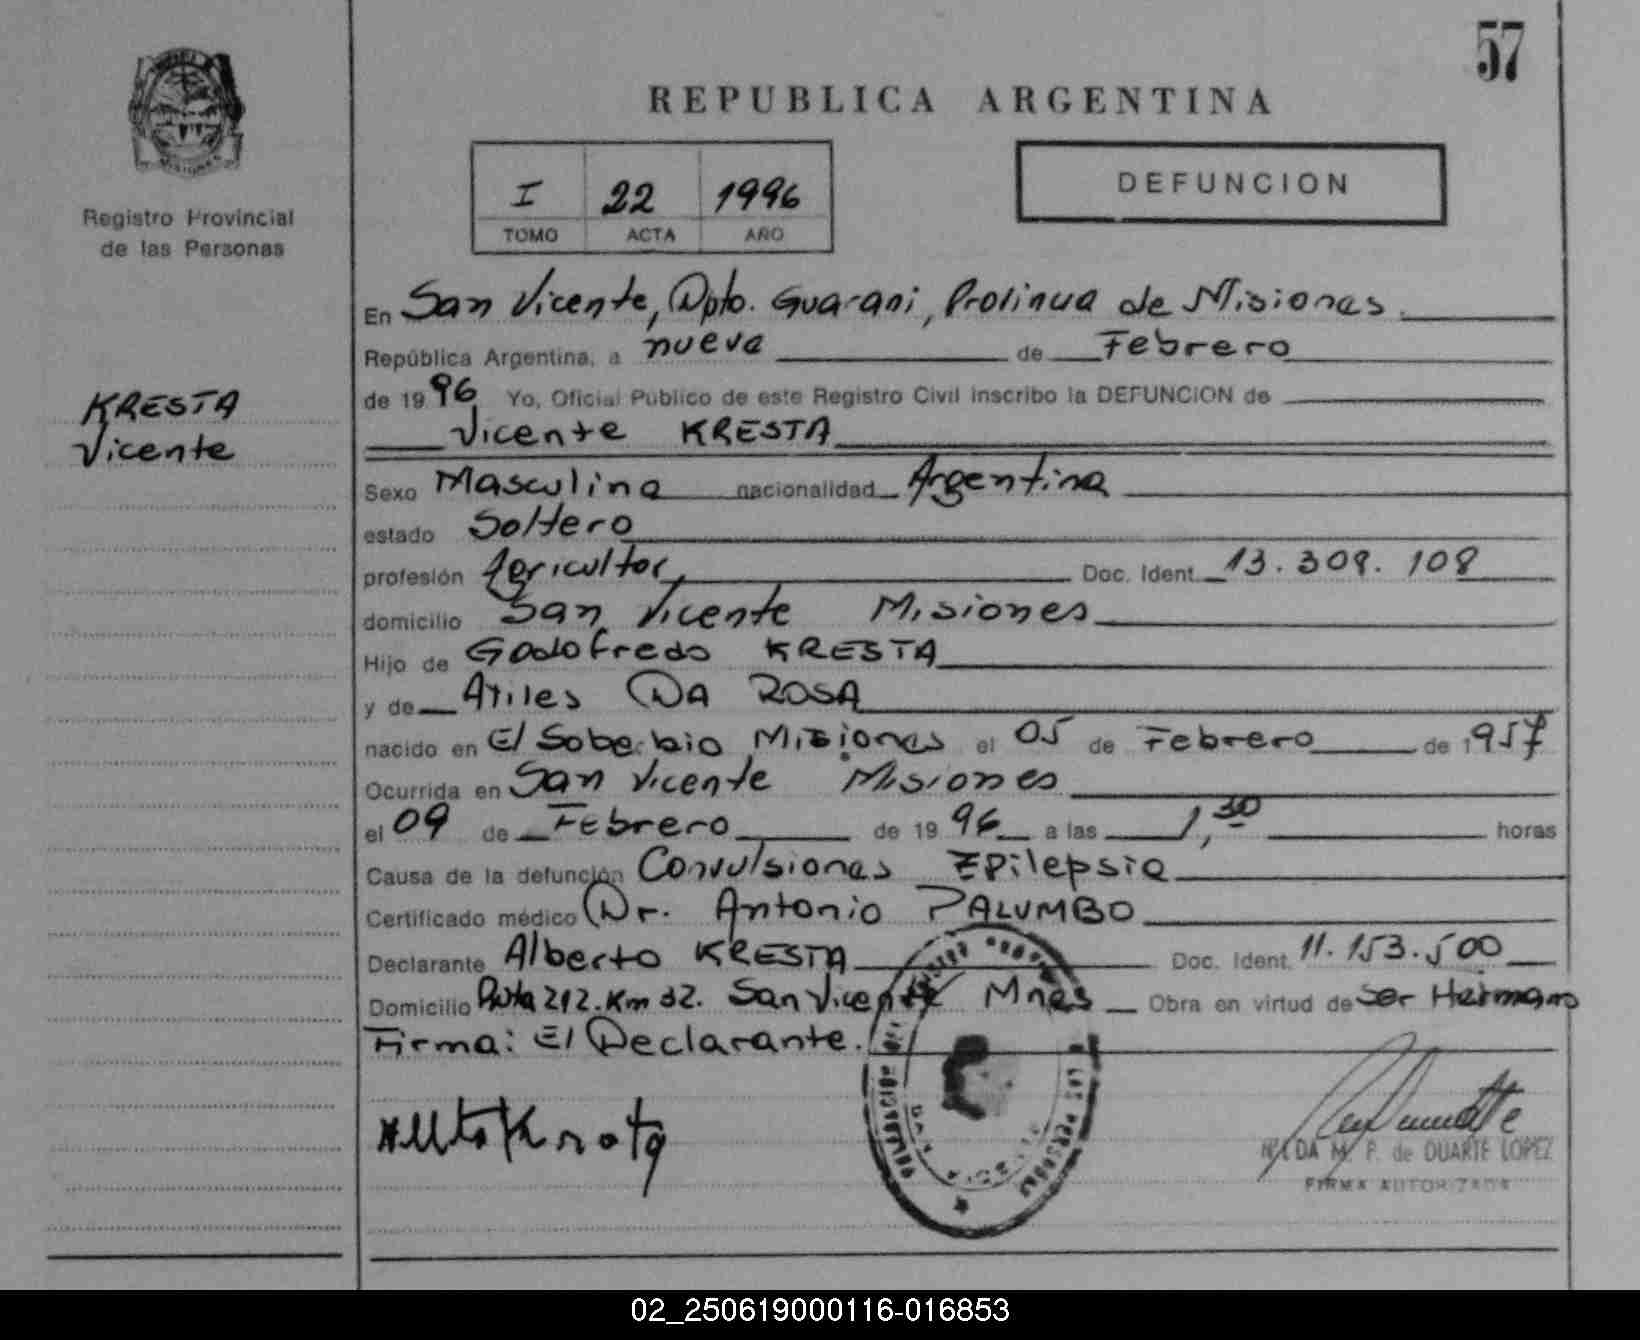 57
REPUBLICA ARGENTINA
I 22 1996
TOMO ACTA AÑO
DEFUNCION
MISIONES
Registro Provincial
de las Personas
KRESTA
Vicente
En San Vicente, Dpto. Guarani, Prolincia de Misiones
República Argentina, a nueve de Febrero
de 1996 Yo, Oficial Público de este Registro Civil inscribo la DEFUNCION de
Vicente KRESTA
Sexo Masculino nacionalidad Argentina
estado Soltero
profesión Agricultor, Doc. Ident. 13.309.108
domicilio San Vicente Misiones
Hijo de Godofredo KRESTA
y de Atiles DA ROSA
nacido en El Soberbio Misiones el 05 de Febrero de 1957
Ocurrida en San Vicente Misiones
el 09 de Febrero de 1996 a las 1,30 horas
Causa de la defunción Convulsiones Epilepsia
Certificado médico Dr. Antonio PALUMBO
Declarante Alberto KRESTA Doc. Ident. 11.153.500
Domicilio Ruta 212. Km 32. San Vicente Mnes Obra en virtud de Ser Hermano
Firma: El Declarante.
DE LAS PERSONAS
NILDA M. P. de DUARTE LOPEZ
FIRMA AUTORIZADA
02_250619000116-016853